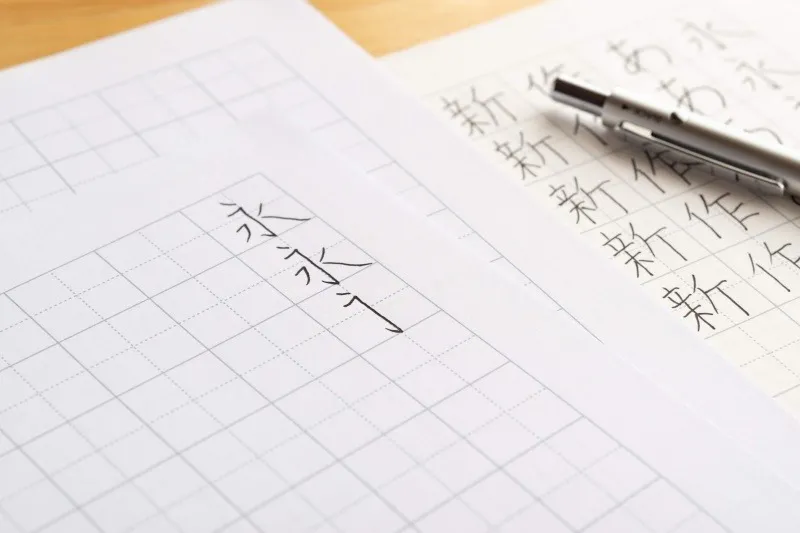 永永
ああ
作作作作
新新新新新
永永